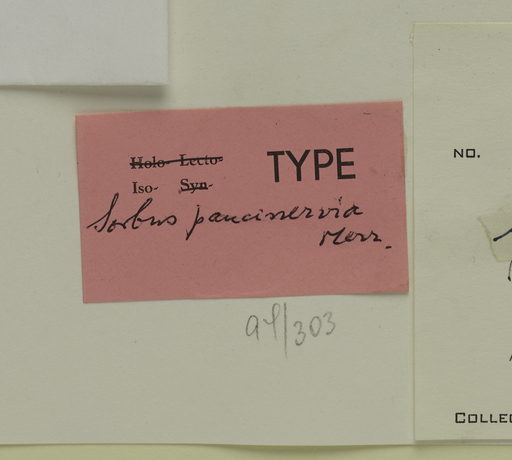 Holo- Lecto- TYPE
Iso- Syn-
Sorbus paucinervia
Merr.
NO.
COLLEC